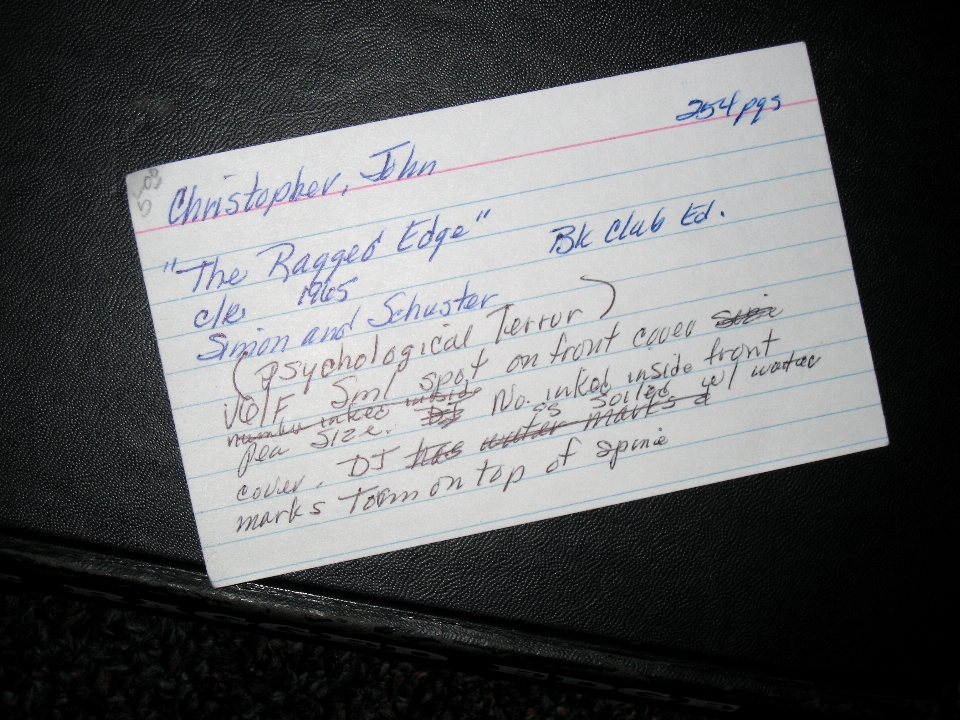 254 pgs
5.00
Christopher, John
"The Ragged Edge" Bk Club Ed.
c/r 1965
Simon and Schuster
(Psychological Terror)
VG/F Sml spot on front cover
number inked inside
pea size. No. inked inside front
cover. DJ has water marks is soiled w/ water
marks Torn on top of spine